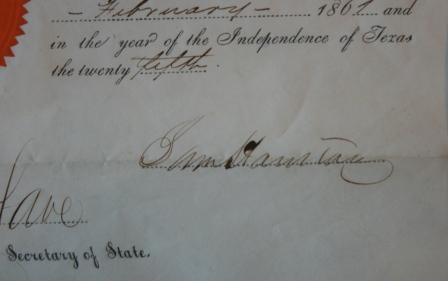 - February - 1861 and
in the year of the Independence of Texas
the twenty fifth.
Sam Houston
Cave
Secretary of State.